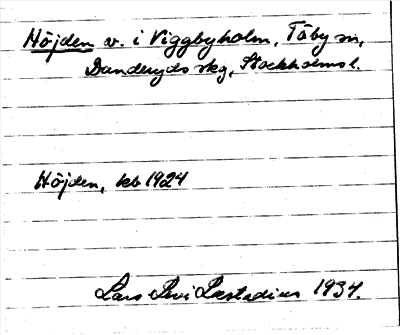 Höjden v. i Viggbyholm, Täby sn,
Danderyds skg, Stockholms l.
Höjden, kb 1924
Lars Levi Læstadius 1934.